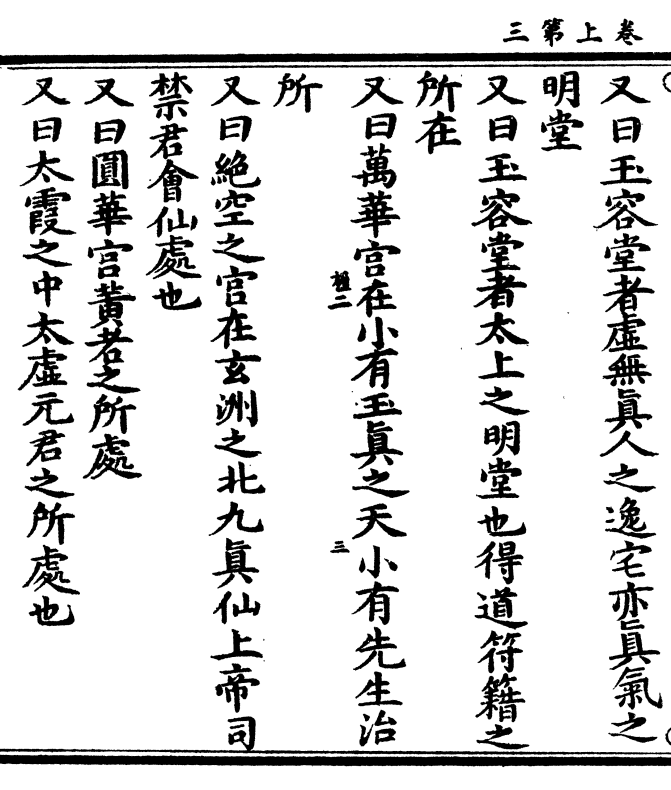 卷上第三
又曰玉容堂者虛無眞人之逸宅亦眞氣之
明堂
又曰玉容堂者太上之明堂也得道符籍之
所在
又曰萬華宮在小有玉眞之天小有先生治
二
三
所
又曰絕空之宮在玄洲之北九眞仙上帝司
禁君會仙處也
又曰圓華宮黃若之所處
又曰太霞之中太虛元君之所處也